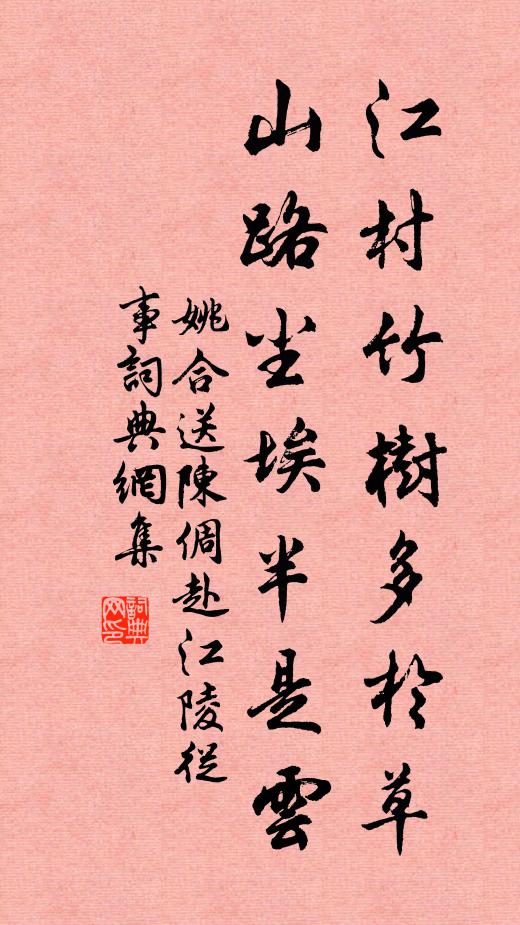 江村竹樹多於草
山路尘埃半是雲
姚合送陳倜赴江陵從
事詞典網集
詞典
网印